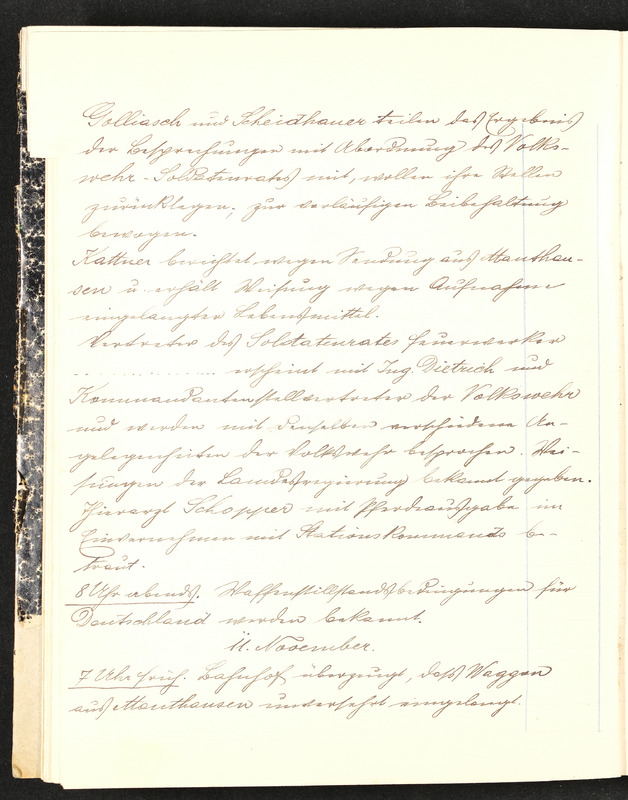 Golliasch und Scheidhauer teilen das Ergebnis
der Besprechungen mit Abordnung des Volks-
wehr-Soldatenrates mit, wollen ihre Stellen
zurücklegen, zur vorläufigen Beibehaltung
bewogen.
Kattner berichtet wegen Sendung aus Mauthau-
sen u. erhält Weisung wegen Aufnahme
eingelangter Lebensmittel.
Vertreter des Soldatenrates Feuerwerker
................ erscheint mit Ing. Dietrich und
Kommandantenstellvertreter der Volkswehr
und werden mit denselben verschiedene An-
gelegenheiten der Volkswehr besprochen. Wei-
sungen der Landesregierung bekannt gegeben.
Tierarzt Schopper mit Pferdeausgabe im
Einvernehmen mit Stationskommando be-
traut.
8 Uhr abends. Waffenstillstandsbedingungen für
Deutschland werden bekannt.
11. November.
7 Uhr früh. Bahnhof überzeugt, dass Waggon
aus Mauthausen unversehrt eingelangt.